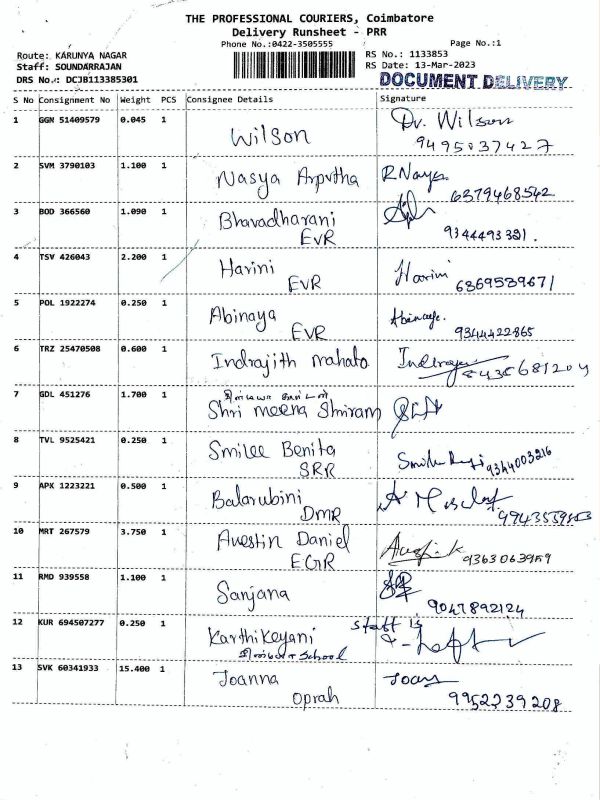 THE PROFESSIONAL COURIERS, Coimbatore
Delivery Runsheet - PRR
Phone No.:0422-3505555
Page No.:1
Route: KARUNYA NAGAR
RS No.: 1133853
Staff: SOUNDARRAJAN
RS Date: 13-Mar-2023
DRS No.: DCJB113385301
DOCUMENT DELIVERY
S No Consignment No Weight PCS Consignee Details Signature
1 GGN 51409579 0.045 1 Wilson Dr. Wilson
9495037427
2 SVM 3790103 1.100 1 Nasya Arputha R Naya
6379468542
3 BOD 366560 1.090 1 Bhavadharani
EVR 9344493321.
4 TSV 426043 2.200 1 Harini Harini
EVR 6369539671
5 POL 1922274 0.250 1 Abinaya Abinaya.
EVR 9344422865
6 TRZ 25470508 0.600 1 Indrajith mahato
7 GDL 451276 1.700 1
Shri meena Shriram
8 TVL 9525421 0.250 1 Smilee Benita
SRR 9344003216
9 APK 1223221 0.500 1 Balarubini
DMR
10 MRT 267579 3.750 1 Auestin Daniel
EGR
11 RMD 939558 1.100 1 Sanjana
9047892124
12 KUR 694507277 0.250 1 Karthikeyani staff is
School
13 SVK 60341933 15.400 1 Joanna
Oprah 9952239208